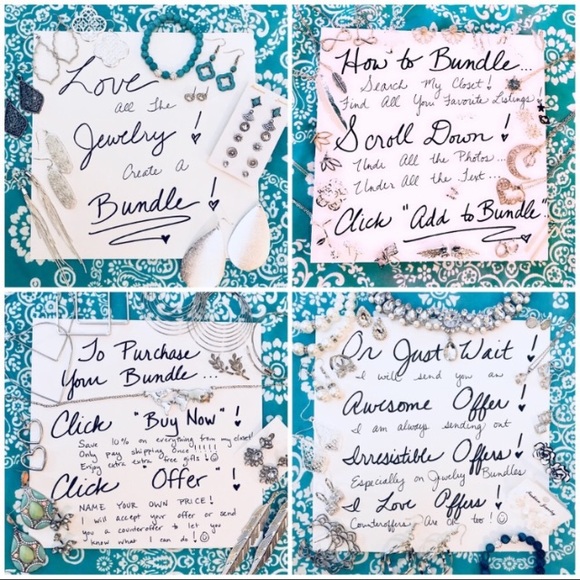 Love
All The
Jewelry!
Create A
Bundle!
How to Bundle...
Search My Closet!
Find All Your Favorite Listings!
Scroll Down!
Unde All the Photos...
Under All the Text...
Click "Add to Bundle"
To Purchase
Your Bundle...
Click "Buy Now"!
Save 10% on everything from my closet
Only pay shipping once!!!!!
Enjoy extra extra free gifts!
Click "Offer"!
NAME YOUR OWN PRICE!
I will accept your offer or send
you a counteroffer to let you
know what I can do!
Or Just Wait!
I will send you an
Awesome Offer!
I am always sending out
Irresistible Offers!
Especially on Jewelry Bundles
I Love Offers!
Counteroffers Are OK too!